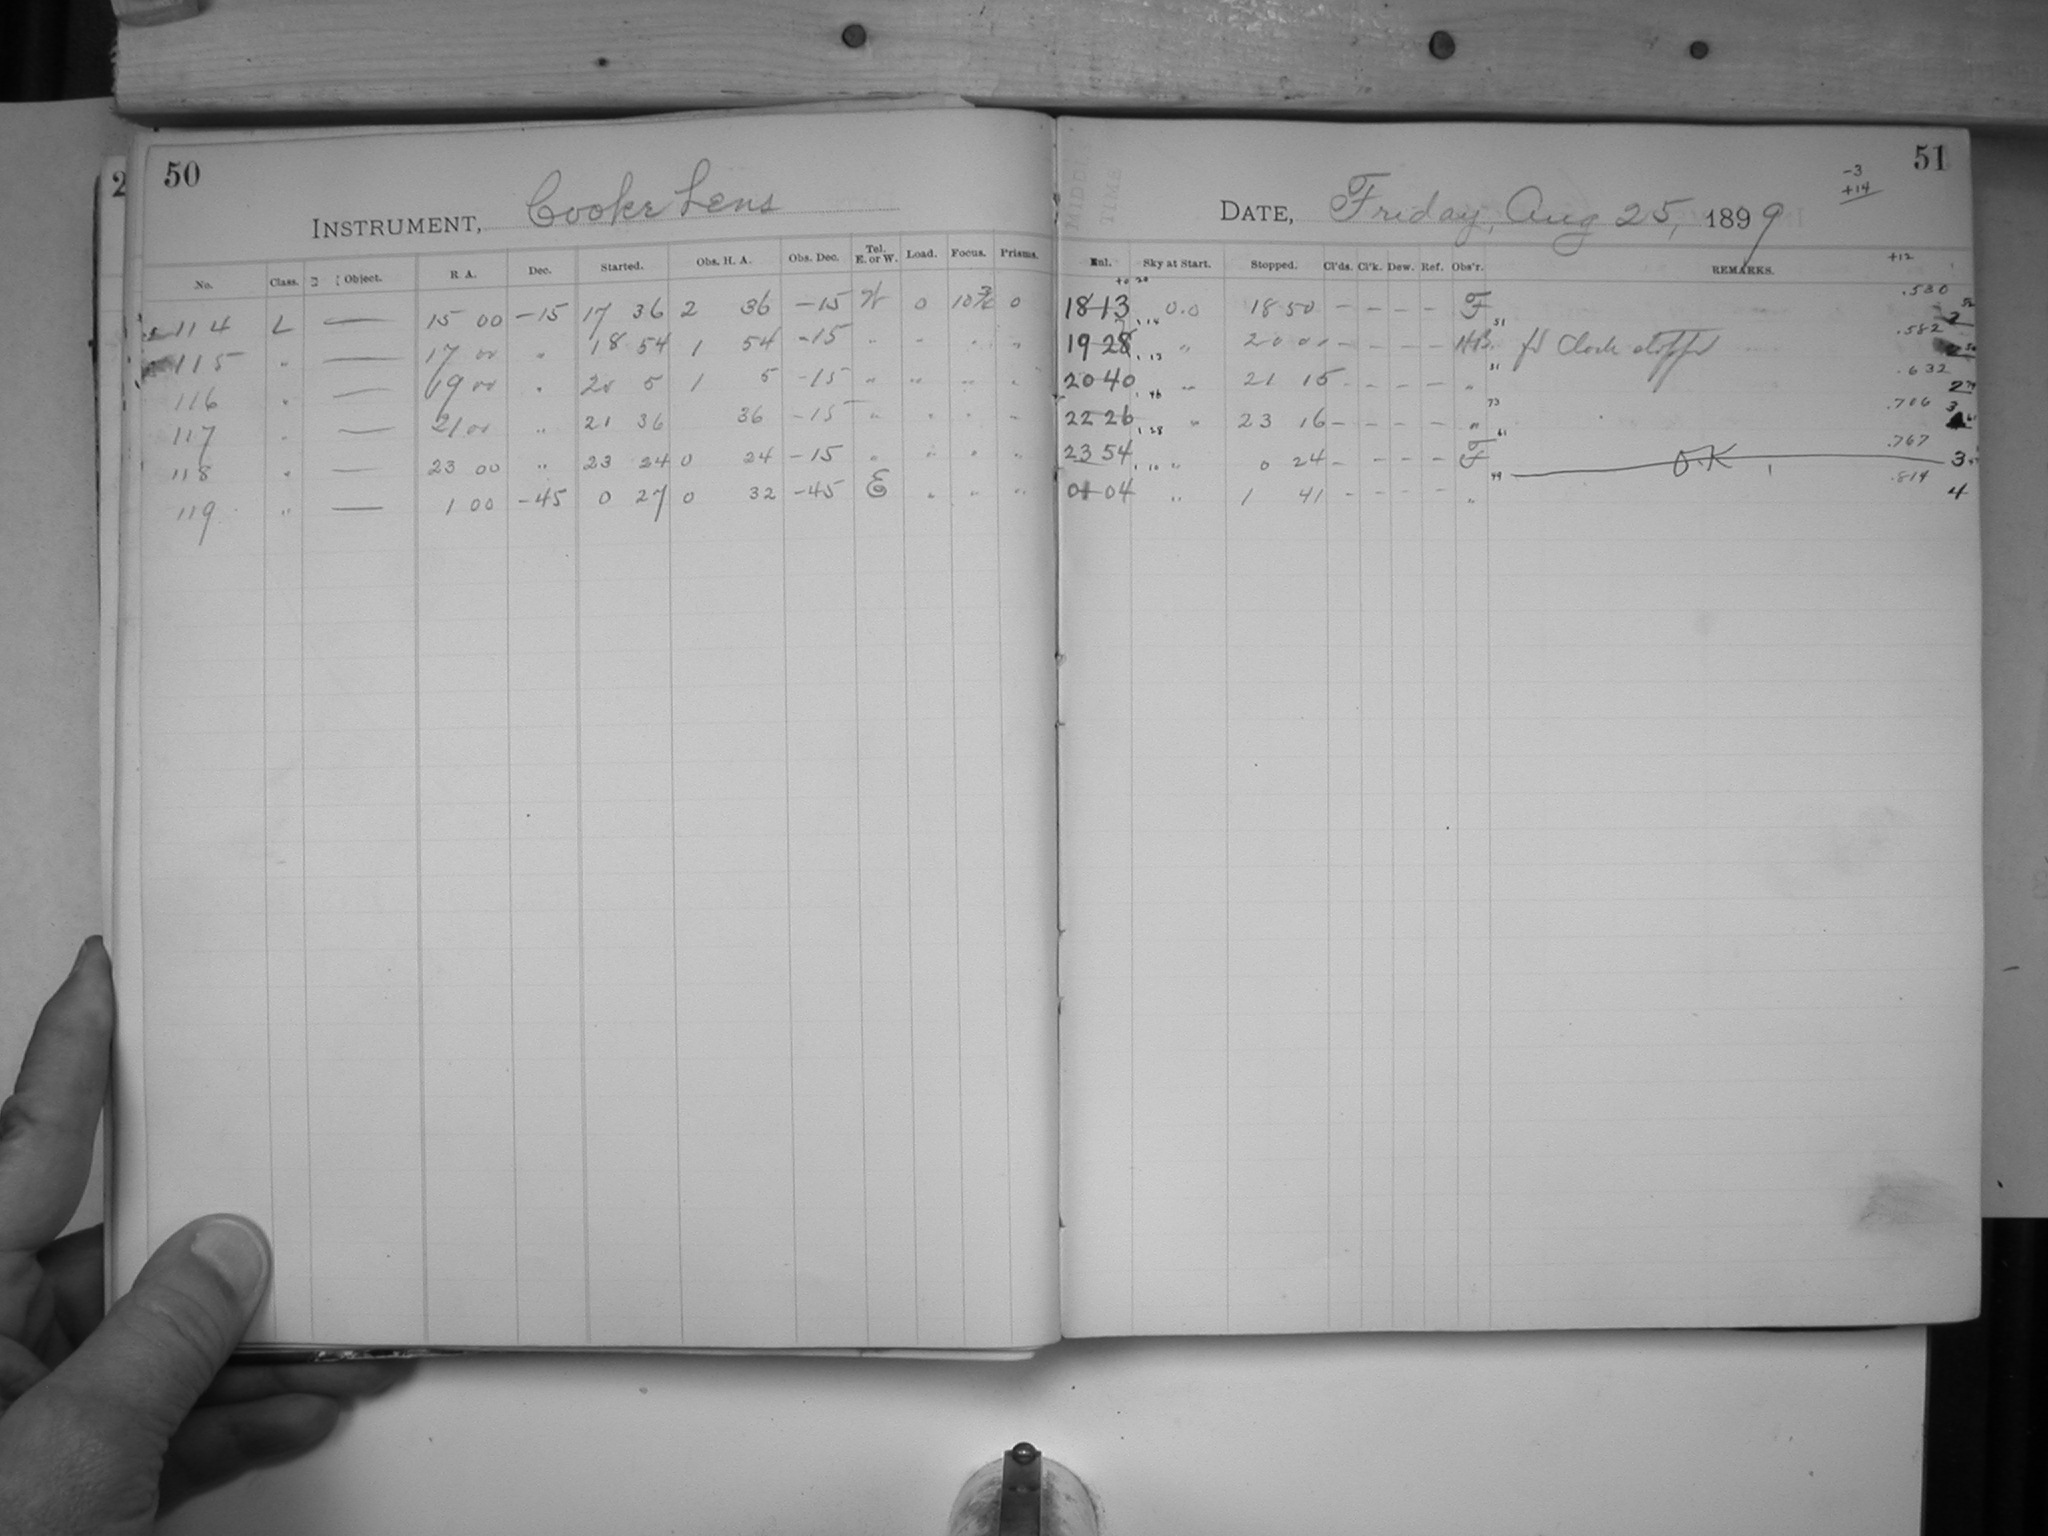 50
INSTRUMENT, Cooke Lens
No. Class. Object. R. A. Dec. Started. Obs. H. A. Obs. Dec. Tel. E. or W. Load. Focus. Prisms.
114 L — 15 00 -15 17 36 2 36 -15 W 0 0
115 " — 17 00 " 18 54 1 54 -15 " " " "
116 " — 19 00 " 20 5 1 5 -15 " " " "
117 " — 21 00 " 21 36 36 -15 " " " "
118 " — 23 00 " 23 24 0 24 -15 " " " "
119 " — 1 00 -45 0 27 0 32 -45 E " " "
51
-3
+14
DATE, Friday, Aug 25, 1899
Sky at Start. Stopped. Cl'ds. Cl'k. Dew. Ref. Obs'r. REMARKS. +12
18 13 0.0 18 50 - - - - F .530
19 28 " 20 00 - - - - Clock stopped .582
20 40 " 21 15 - - - - " .632
22 26 " 23 16 - - - - " .706
23 54 " 0 24 - - - - F O.K. .767
04 " 1 41 - - - - " .814 4